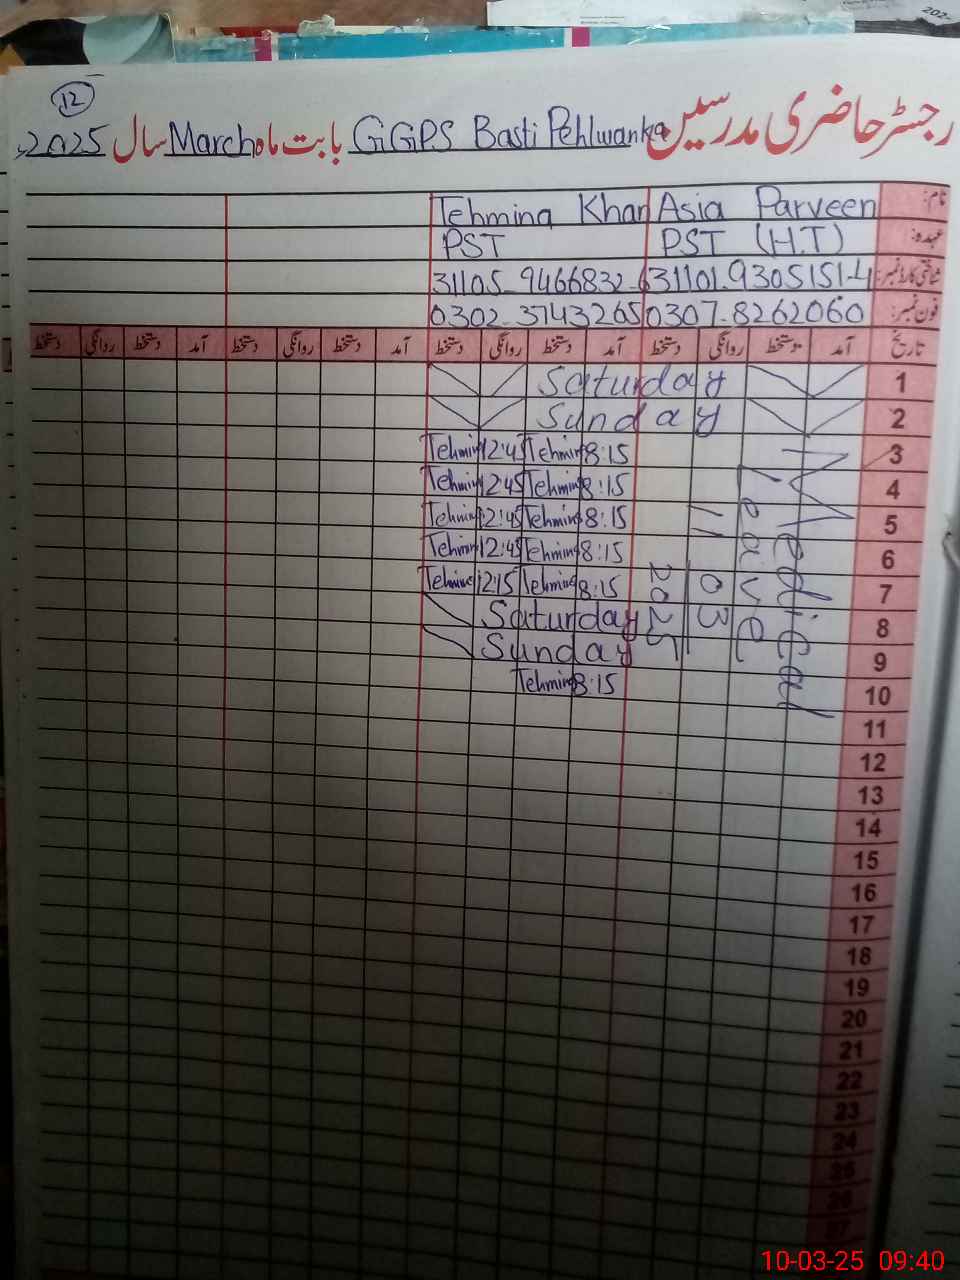 202
12
رجسٹر حاضری مدرسیں GGPS Basti Pehlwanka بابت ماہ March سال 2025
نام: Asia Parveen Tehmina Khan
عہدہ: PST (H.T) PST
شناختی کارڈ نمبر: 31101-9305151-4 31105-9466832-6
فون نمبر: 0307-8262060 0302-3743265
تاریخ آمد دستخط روانگی دستخط آمد دستخط روانگی دستخط آمد دستخط روانگی دستخط آمد دستخط روانگی دستخط
1 Saturday
2 Sunday
3 8:15 Tehmina 12:45 Tehmina
4 8:15 Tehmina 12:45 Tehmina
5 8:15 Tehmina 12:45 Tehmina
6 8:15 Tehmina 12:45 Tehmina
7 8:15 Tehmina 12:15 Tehmina
8 Saturday
9 Sunday
10 8:15 Tehmina
Medical
Leave
11
03
2025
11
12
13
14
15
16
17
18
19
20
21
22
23
24
25
26
27
10-03-25 09:40